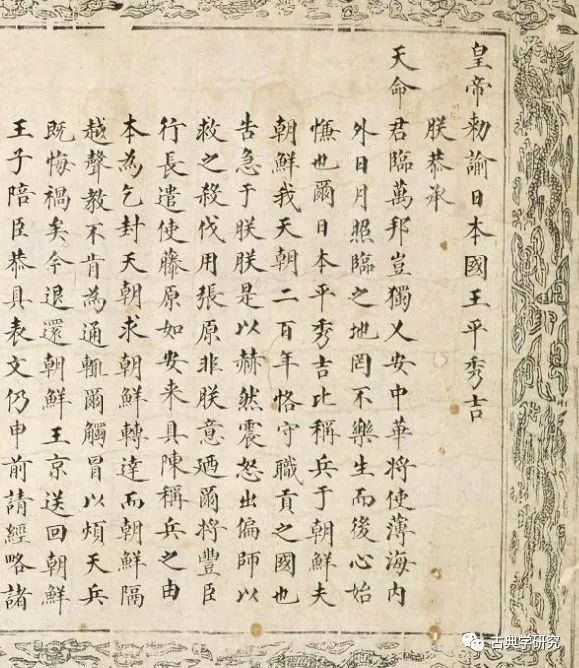 皇帝勅諭日本國王平秀吉
朕恭承
天命君臨萬邦豈獨乂安中華將使薄海內
外日月照臨之地罔不樂生而後心始
慊也爾日本平秀吉比稱兵于朝鮮夫
朝鮮我天朝二百年恪守職貢之國也
告急于朕朕是以赫然震怒出偏師以
救之殺伐用張原非朕意廼爾將豐臣
行長遣使藤原如安来具陳稱兵之由
本為乞封天朝求朝鮮轉達而朝鮮隔
越聲教不肯為通輒爾觸冒以煩天兵
既悔禍矣今退還朝鮮王京送回朝鮮
王子陪臣恭具表文仍申前請經略諸
古典学研究